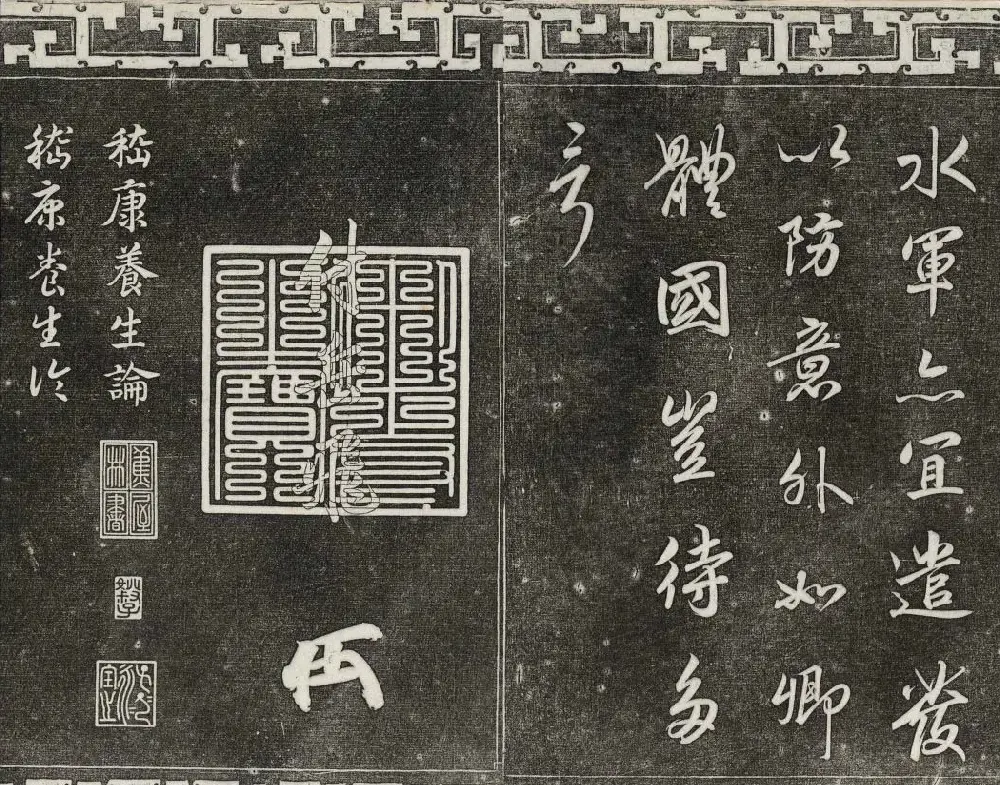 水軍亦宜遣發
以防意外如卿
體國豈待多
言
付岳飛
嵇康養生論
蕉林書屋
嵇康養生論